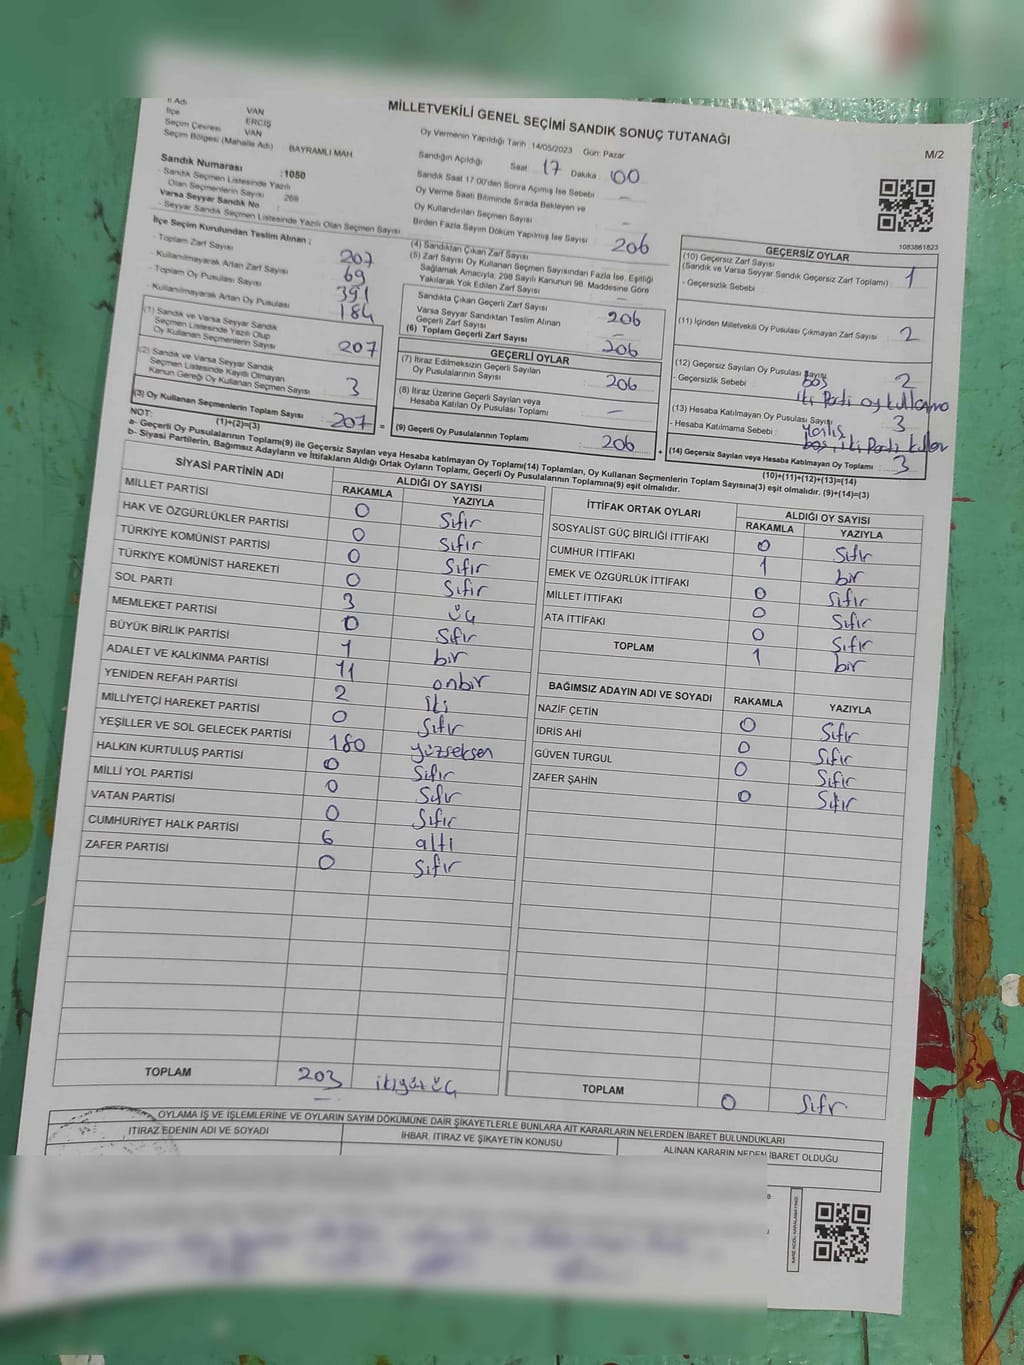 MİLLETVEKİLİ GENEL SEÇİMİ SANDIK SONUÇ TUTANAĞI
M/2
İl Adı : VAN
İlçe : ERCİŞ
Seçim Çevresi : VAN
Seçim Bölgesi (Mahalle Adı) : BAYRAMLI MAH
Sandık Numarası : 1050
- Sandık Seçmen Listesinde Yazılı
Olan Seçmenlerin Sayısı : 269
Varsa Seyyar Sandık No :
- Seyyar Sandık Seçmen Listesinde Yazılı Olan Seçmen Sayısı
Oy Vermenin Yapıldığı Tarih : 14/05/2023 Gün: Pazar
Sandığın Açıldığı Saat : 17 Dakika : 00
Sandık Saat 17.00'den Sonra Açılmış İse Sebebi : –
Oy Verme Saati Bitiminde Sırada Bekleyen ve
Oy Kullandırılan Seçmen Sayısı : –
Birden Fazla Sayım Döküm Yapılmış İse Sayısı : –
1083861823
İlçe Seçim Kurulundan Teslim Alınan :
- Toplam Zarf Sayısı 207
- Kullanılmayarak Artan Zarf Sayısı 69
- Toplam Oy Pusulası Sayısı 391
- Kullanılmayarak Artan Oy Pusulası 184
(1) Sandık ve Varsa Seyyar Sandık
Seçmen Listesinde Yazılı Olup
Oy Kullanan Seçmenlerin Sayısı 207
(2) Sandık ve Varsa Seyyar Sandık
Seçmen Listesinde Kayıtlı Olmayan
Kanun Gereği Oy Kullanan Seçmen Sayısı 3
(3) Oy Kullanan Seçmenlerin Toplam Sayısı
(1)+(2)=(3) 207 =
(4) Sandıktan Çıkan Zarf Sayısı 206
(5) Zarf Sayısı Oy Kullanan Seçmen Sayısından Fazla İse, Eşitliği
Sağlamak Amacıyla; 298 Sayılı Kanunun 98. Maddesine Göre
Yakılarak Yok Edilen Zarf Sayısı : –
Sandıkta Çıkan Geçerli Zarf Sayısı 206
Varsa Seyyar Sandıktan Teslim Alınan
Geçerli Zarf Sayısı –
(6) Toplam Geçerli Zarf Sayısı 206
GEÇERLİ OYLAR
(7) İtiraz Edilmeksizin Geçerli Sayılan
Oy Pusulalarının Sayısı 206
(8) İtiraz Üzerine Geçerli Sayılan veya
Hesaba Katılan Oy Pusulası Toplamı –
(9) Geçerli Oy Pusulalarının Toplamı 206 +
GEÇERSİZ OYLAR
(10) Geçersiz Zarf Sayısı
(Sandık ve Varsa Seyyar Sandık Geçersiz Zarf Toplamı) 1
- Geçersizlik Sebebi :
(11) İçinden Milletvekili Oy Pusulası Çıkmayan Zarf Sayısı 2
(12) Geçersiz Sayılan Oy Pusulası Sayısı 2
- Geçersizlik Sebebi : boş
iki Parti oy kullanma
(13) Hesaba Katılmayan Oy Pusulası Sayısı 3
- Hesaba Katılmama Sebebi : yanlış
boş, iki Parti kullan
(14) Geçersiz Sayılan veya Hesaba Katılmayan Oy Toplamı 3
(10)+(11)+(12)+(13)=(14)
NOT:
a- Geçerli Oy Pusulalarının Toplamı(9) ile Geçersiz Sayılan veya Hesaba katılmayan Oy Toplamı(14) Toplamları, Oy Kullanan Seçmenlerin Toplam Sayısına(3) eşit olmalıdır. (9)+(14)=(3)
b- Siyasi Partilerin, Bağımsız Adayların ve İttifakların Aldığı Ortak Oyların Toplamı, Geçerli Oy Pusulalarının Toplamına(9) eşit olmalıdır.
SİYASİ PARTİNİN ADI ALDIĞI OY SAYISI
RAKAMLA YAZIYLA
MİLLET PARTİSİ 0 Sıfır
HAK VE ÖZGÜRLÜKLER PARTİSİ 0 Sıfır
TÜRKİYE KOMÜNİST PARTİSİ 0 Sıfır
TÜRKİYE KOMÜNİST HAREKETİ 0 Sıfır
SOL PARTİ 3 üç
MEMLEKET PARTİSİ 0 Sıfır
BÜYÜK BİRLİK PARTİSİ 1 bir
ADALET VE KALKINMA PARTİSİ 11 onbir
YENİDEN REFAH PARTİSİ 2 iki
MİLLİYETÇİ HAREKET PARTİSİ 0 Sıfır
YEŞİLLER VE SOL GELECEK PARTİSİ 180 yüzseksen
HALKIN KURTULUŞ PARTİSİ 0 Sıfır
MİLLİ YOL PARTİSİ 0 Sıfır
VATAN PARTİSİ 0 Sıfır
CUMHURİYET HALK PARTİSİ 6 altı
ZAFER PARTİSİ 0 Sıfır
TOPLAM 203 ikiyüz üç
İTTİFAK ORTAK OYLARI ALDIĞI OY SAYISI
RAKAMLA YAZIYLA
SOSYALİST GÜÇ BİRLİĞİ İTTİFAKI 0 Sıfır
CUMHUR İTTİFAKI 1 bir
EMEK VE ÖZGÜRLÜK İTTİFAKI 0 Sıfır
MİLLET İTTİFAKI 0 Sıfır
ATA İTTİFAKI 0 Sıfır
TOPLAM 1 bir
BAĞIMSIZ ADAYIN ADI VE SOYADI RAKAMLA YAZIYLA
NAZİF ÇETİN 0 Sıfır
İDRİS AHİ 0 Sıfır
GÜVEN TURGUL 0 Sıfır
ZAFER ŞAHİN 0 Sıfır
TOPLAM 0 Sıfır
OYLAMA İŞ VE İŞLEMLERİNE VE OYLARIN SAYIM DÖKÜMÜNE DAİR ŞİKAYETLERLE BUNLARA AİT KARARLARIN NELERDEN İBARET BULUNDUKLARI
İTİRAZ EDENİN ADI VE SOYADI İHBAR, İTİRAZ VE ŞİKAYETİN KONUSU ALINAN KARARIN NEDEN İBARET OLDUĞU